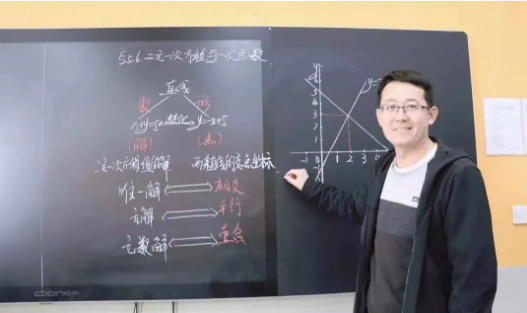 §5.6 二元一次方程与一次函数
直线
数 形
x+y=5 转化 y=-x+5
(解) (点)
二元一次方程组的解 两条直线的交点坐标
唯一解 相交
无解 平行
无数解 重合
y
5
4
3
2
1
-1 0 1 2 3 4
y=